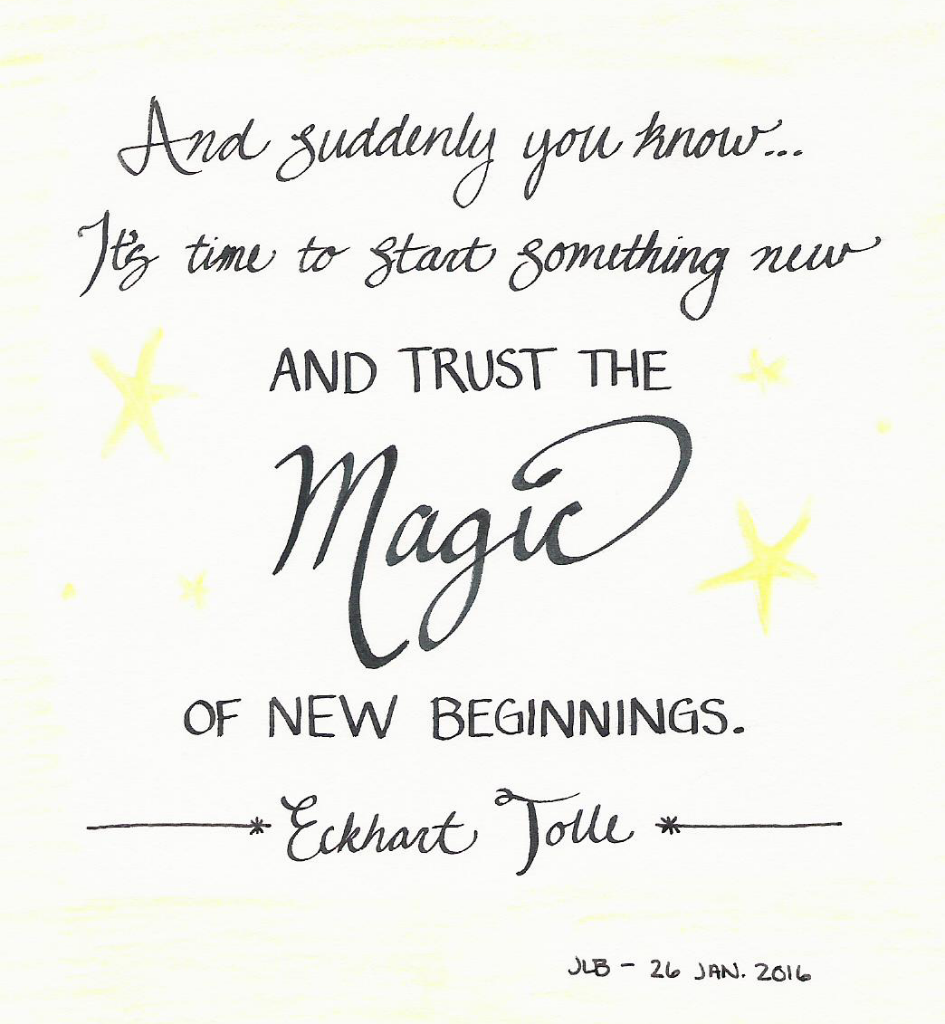 And suddenly you know...
It's time to start something new
AND TRUST THE
Magic
OF NEW BEGINNINGS.
Eckhart Tolle
JLB - 26 JAN. 2016